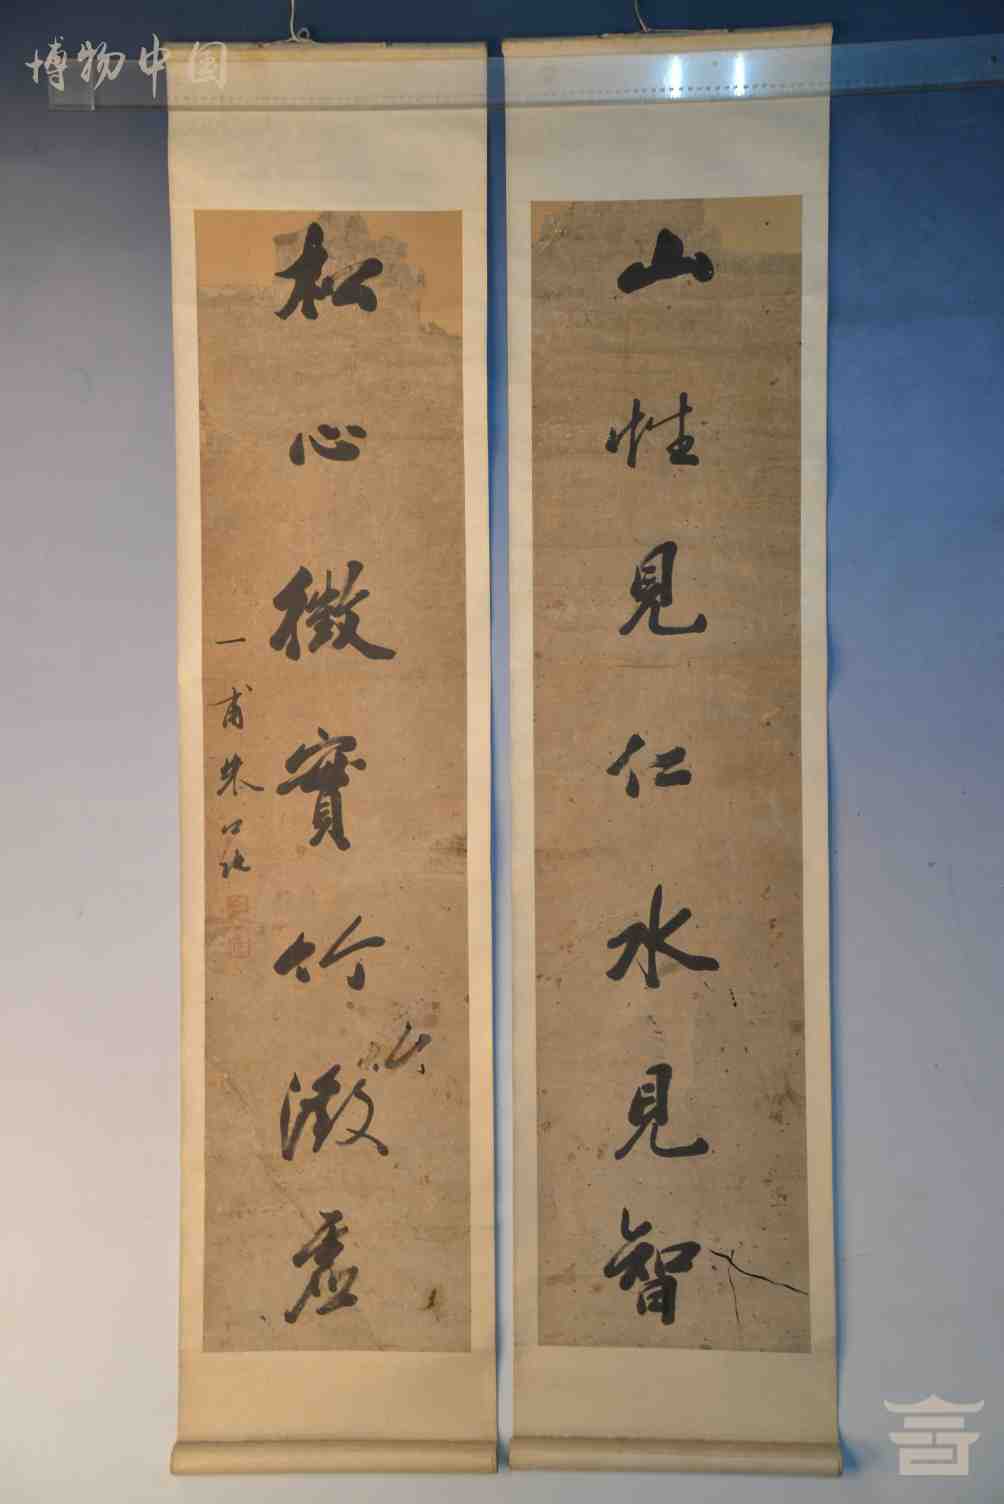 博物中国
山性見仁水見智
松心徵實竹澂虛
一甫朱